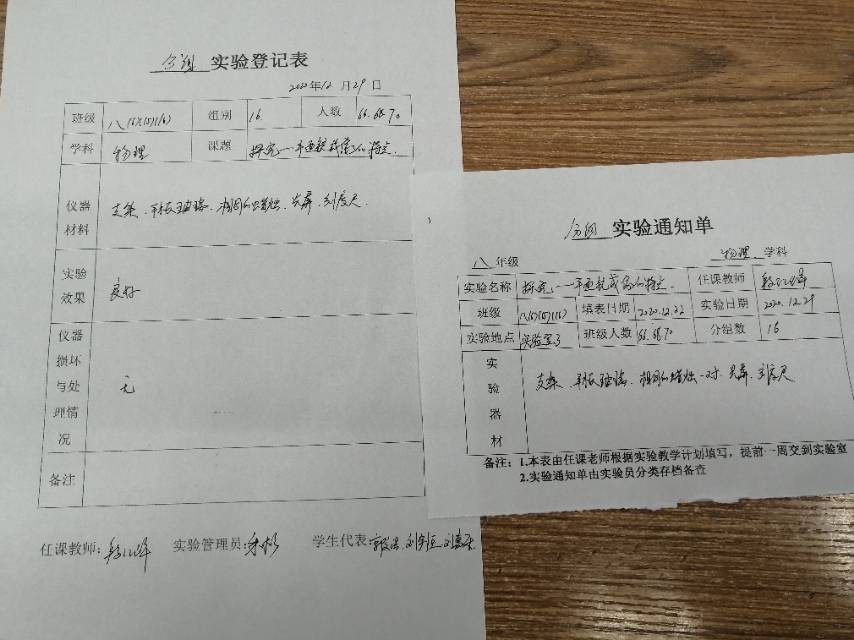 分组 实验登记表
2020年12月29日
班级 组别 16 人数 66.68.70
学科 物理 课题 探究:平面镜成像的特点.
仪器材料 支架.平板玻璃.相同的蜡烛.光屏.刻度尺
实验效果 良好
仪器损坏与处理情况 无
备注
任课教师: 实验管理员: 学生代表:
分组 实验通知单
八 年级 物理 学科
实验名称 探究:平面镜成像的特点. 任课教师
班级 填表日期 2020.12.22 实验日期 2020.12.29
实验地点 实验室3 班级人数 66.68.70 分组数 16
实验器材 支架.平板玻璃.相同的蜡烛一对.光屏.刻度尺
备注:1.本表由任课老师根据实验教学计划填写,提前一周交到实验室
2.实验通知单由实验员分类存档备查